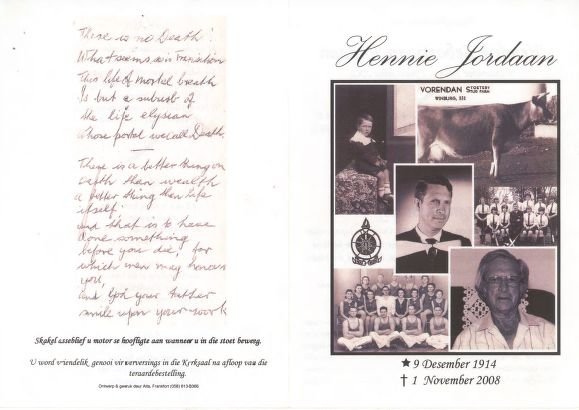 There is no Death!
What seems so is Transition
This life of mortal breath
Is but a suburb of
the life elysian
whose portal we call Death.
There is a better thing on
earth than wealth
a better thing than life
itself!
and that is to have
done something
before you die, for
which men may honour
you,
and God your father
smile upon your work
Skakel asseblief u motor se hoofligte aan wanneer u in die stoet beweeg.
U word vriendelik genooi vir verversings in die Kerksaal na afloop van die
teraardebestelling.
Ontwerp & gedruk deur Arto, Frankfort (058) 813-
Hennie Jordaan
VORENDAN STOETERY
STUD FARM
WINBURG,
9 Desember 1914
1 November 2008